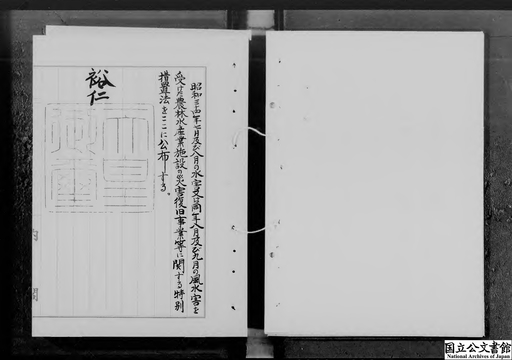 昭和三十四年七月及び八月の水害又は同年八月及び九月の風水害を
受けた農林水産業施設の災害復旧事業等に関する特別
措置法をここに公布する。
裕仁
天皇
御璽
国立公文書館
National Archives of Japan